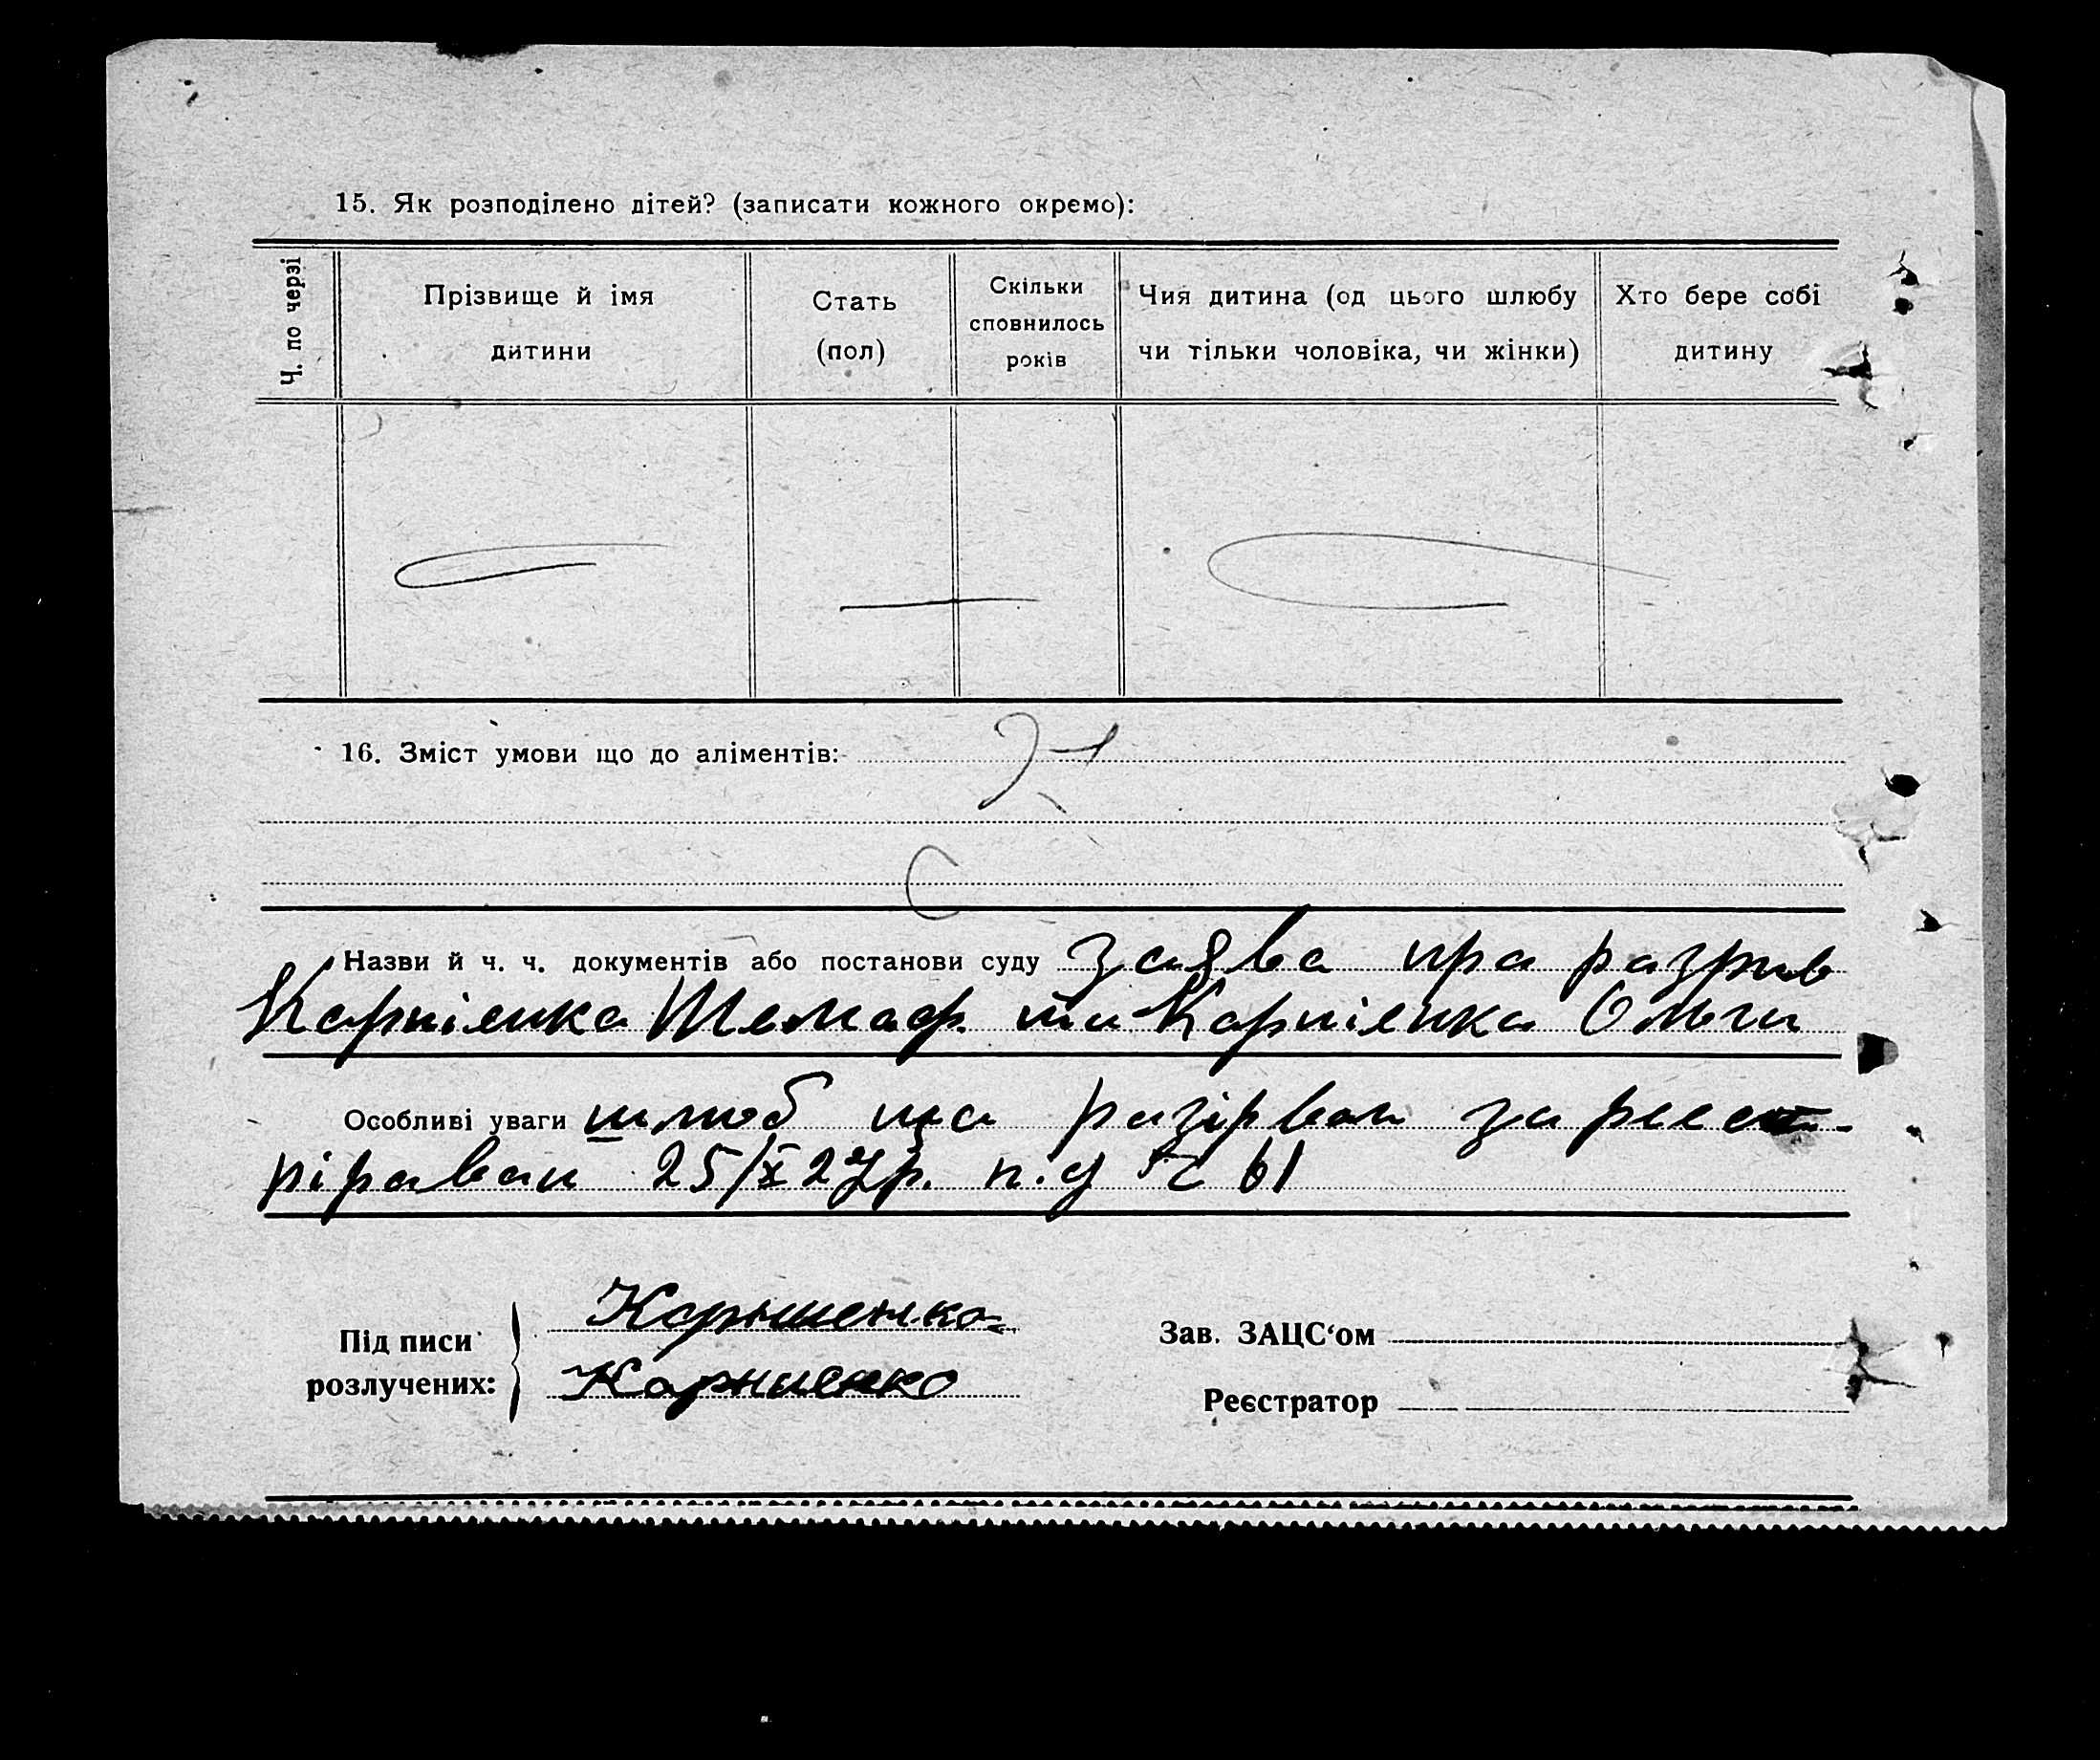 15. Як розподілено дітей? (записати кожного окремо):
Ч. по черзі
Прізвище й імя
дитини
Стать
(пол)
Скільки
сповнилось
років
Чия дитина (од цього шлюбу
чи тільки чоловіка, чи жінки)
Хто бере собі
дитину
16. Зміст умови що до аліментів:
Назви й ч. ч. документів або постанови суду заява про разрив
Карпіенка та Карпіенка Ольги
Особливі уваги шлюб разірван зареест-
ріраван 25/X 27р. п.д № 61
Під писи
розлучених:
Карпиенко
Карпиенко
Зав. ЗАЦС‘ом
Реєстратор